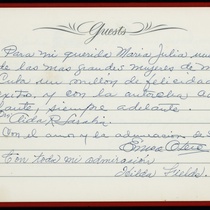 Guests
Para mi querida Maria Julia una
de las mas grandes mujeres de mi
Cuba un millon de felicidades
exitos, y con la antorcha ad
lante, siempre adelante.
Aida R. Sarahi
Con el amor y la admiracion de
Emea Otero
Con toda mi admiración
Hilda Fields.